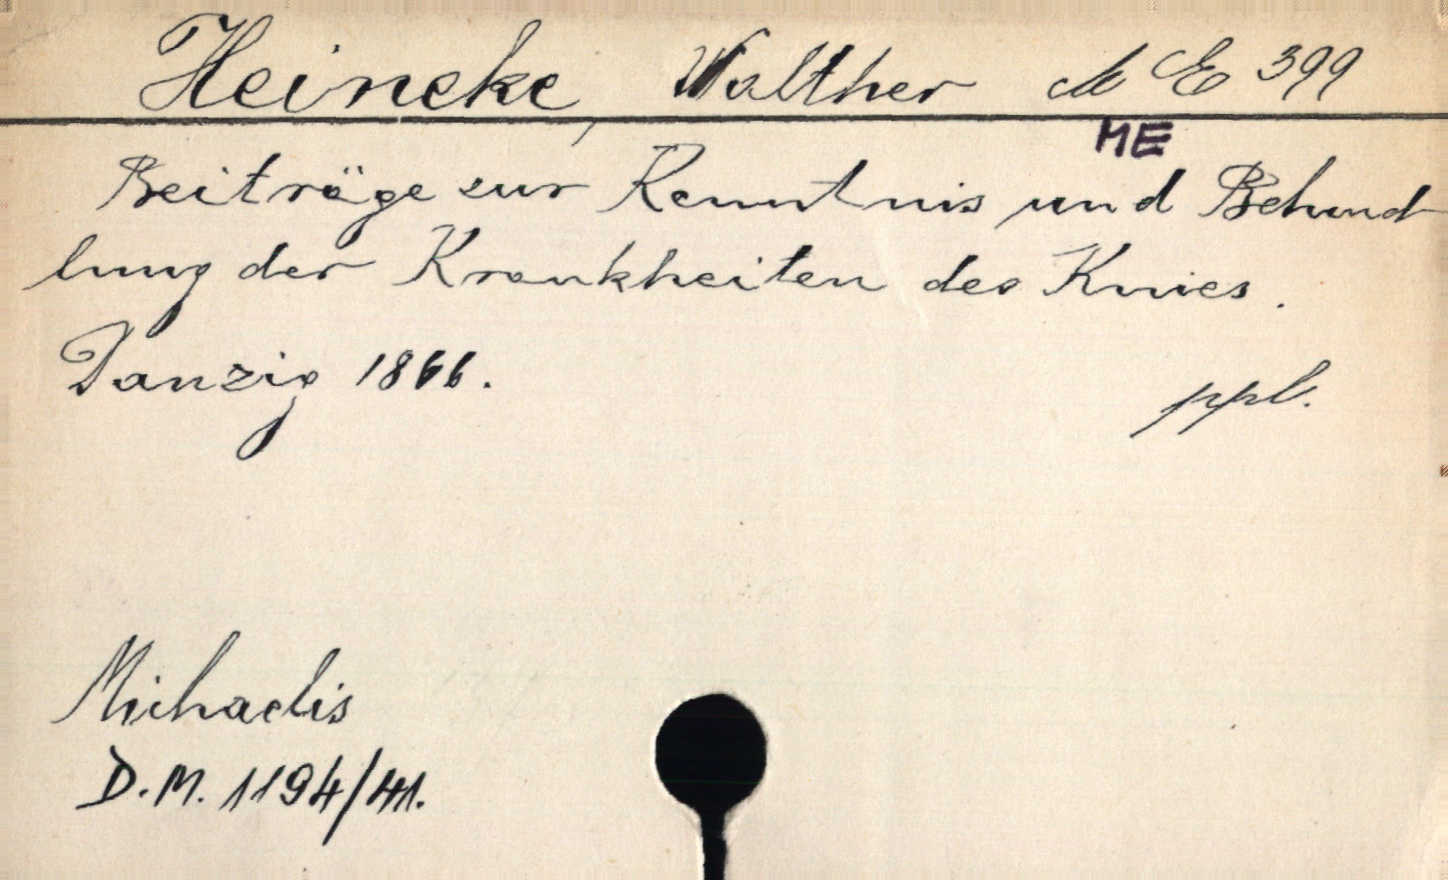 Heineke, Walther M E 399
ME
Beiträge zur Kenntnis und Behand
lung der Krankheiten des Knies.
Danzig 1866.
ppl.
Michaelis
D.M. 1194/41.